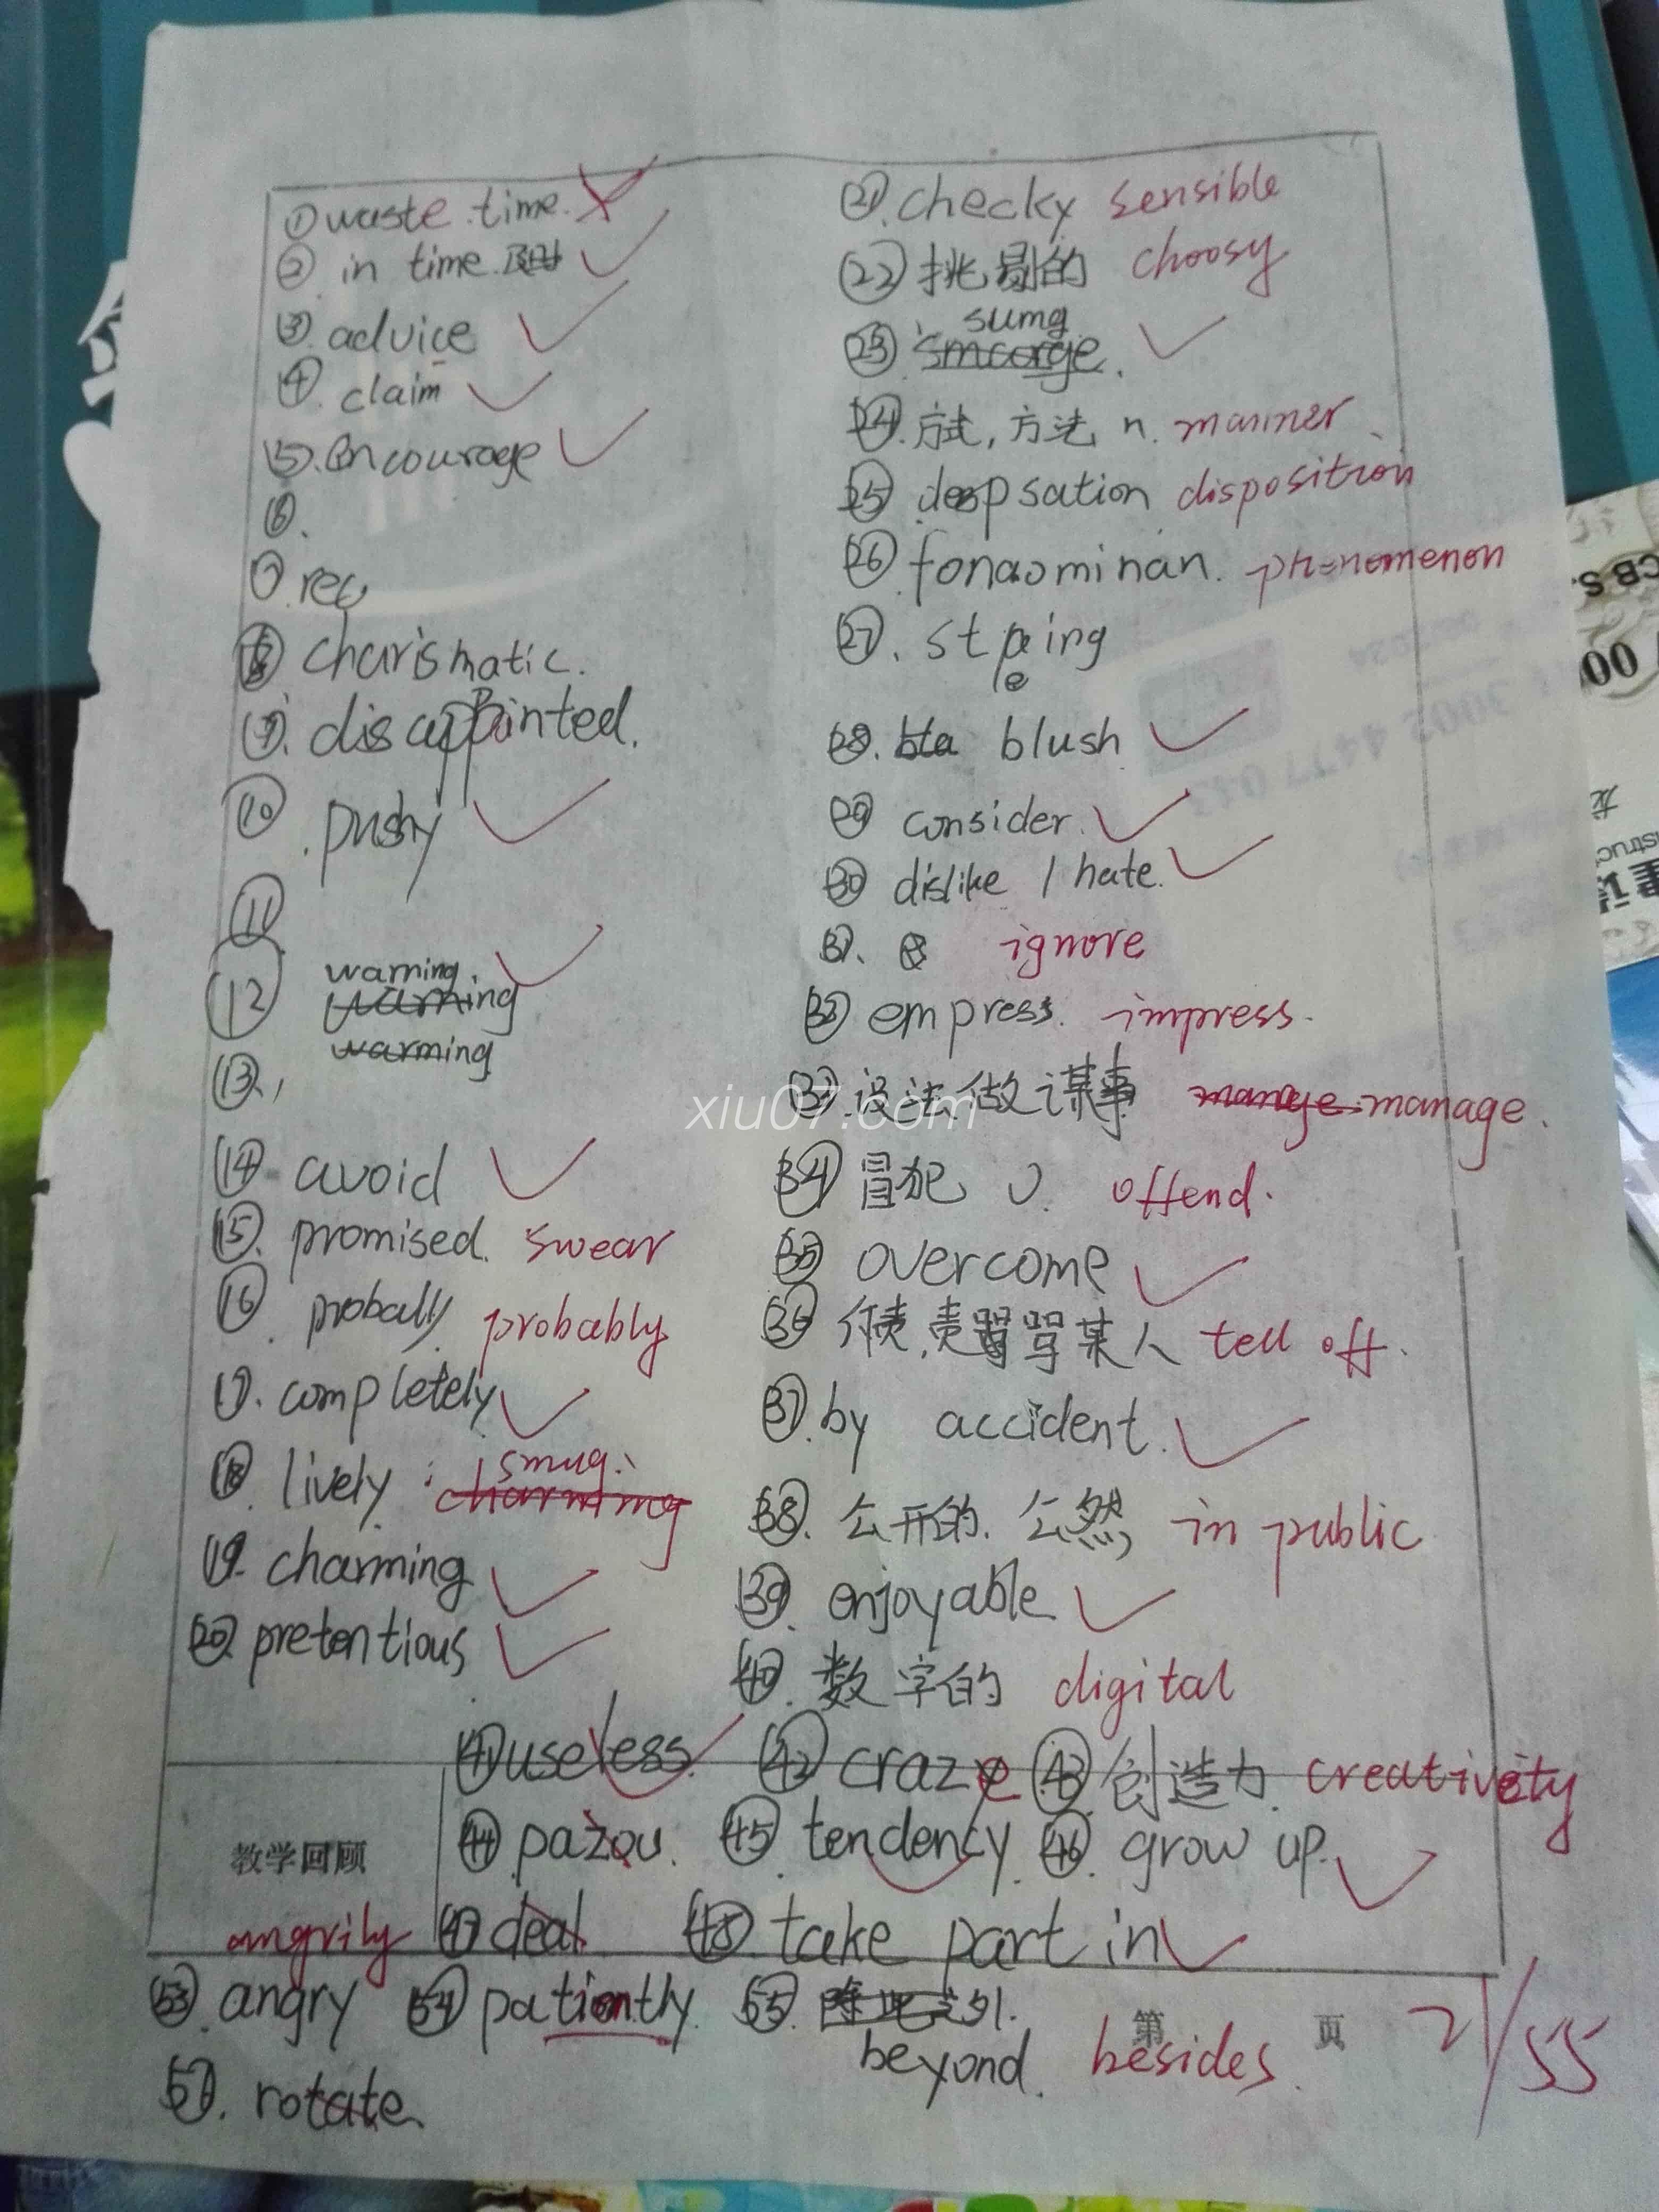 ① waste time.
② in time.
③ advice
④ claim
⑤ Encourage
⑥
⑦ rec
⑧ charismatic.
⑨ disappointed.
⑩ pushy
⑪
⑫ warning.
warming
⑬
⑭ avoid
⑮ promised. swear
⑯ probally probably
⑰ completely
⑱ lively smug.
charming
⑲ charming
⑳ pretentious
㉑ checky sensible
㉒ 挑剔的 choosy
㉓ sumg
smcorge
㉔ 方式,方法 n. manner
㉕ deepsation disposition
㉖ fonaominan. phenomenon
㉗ steing
㉘ blush
㉙ consider.
㉚ dislike / hate.
㉛ ignore
㉜ empress. impress.
㉝ 设法做某事 manage.
㉞ 冒犯 v. offend.
㉟ overcome
㊱ 责骂某人 tell off.
㊲ by accident.
㊳ 公开的. 公然 in public
㊴ enjoyable
㊵ 数字的 digital
㊶ useless. ㊷ craze ㊸ 创造力. creativity
㊹ pazou. ㊺ tendency. ㊻ grow up.
教学回顾
angrily ㊼ deal ㊽ take part in
53. angry 54 patiently 55. 除此之外.
beyond. besides.
第 页 21/55
rotate
xiu07.com